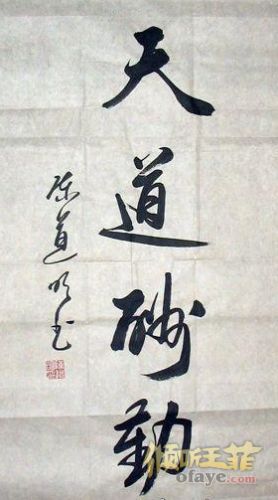 天道酬勤
陈道明书
倾听王菲
ofaye.com